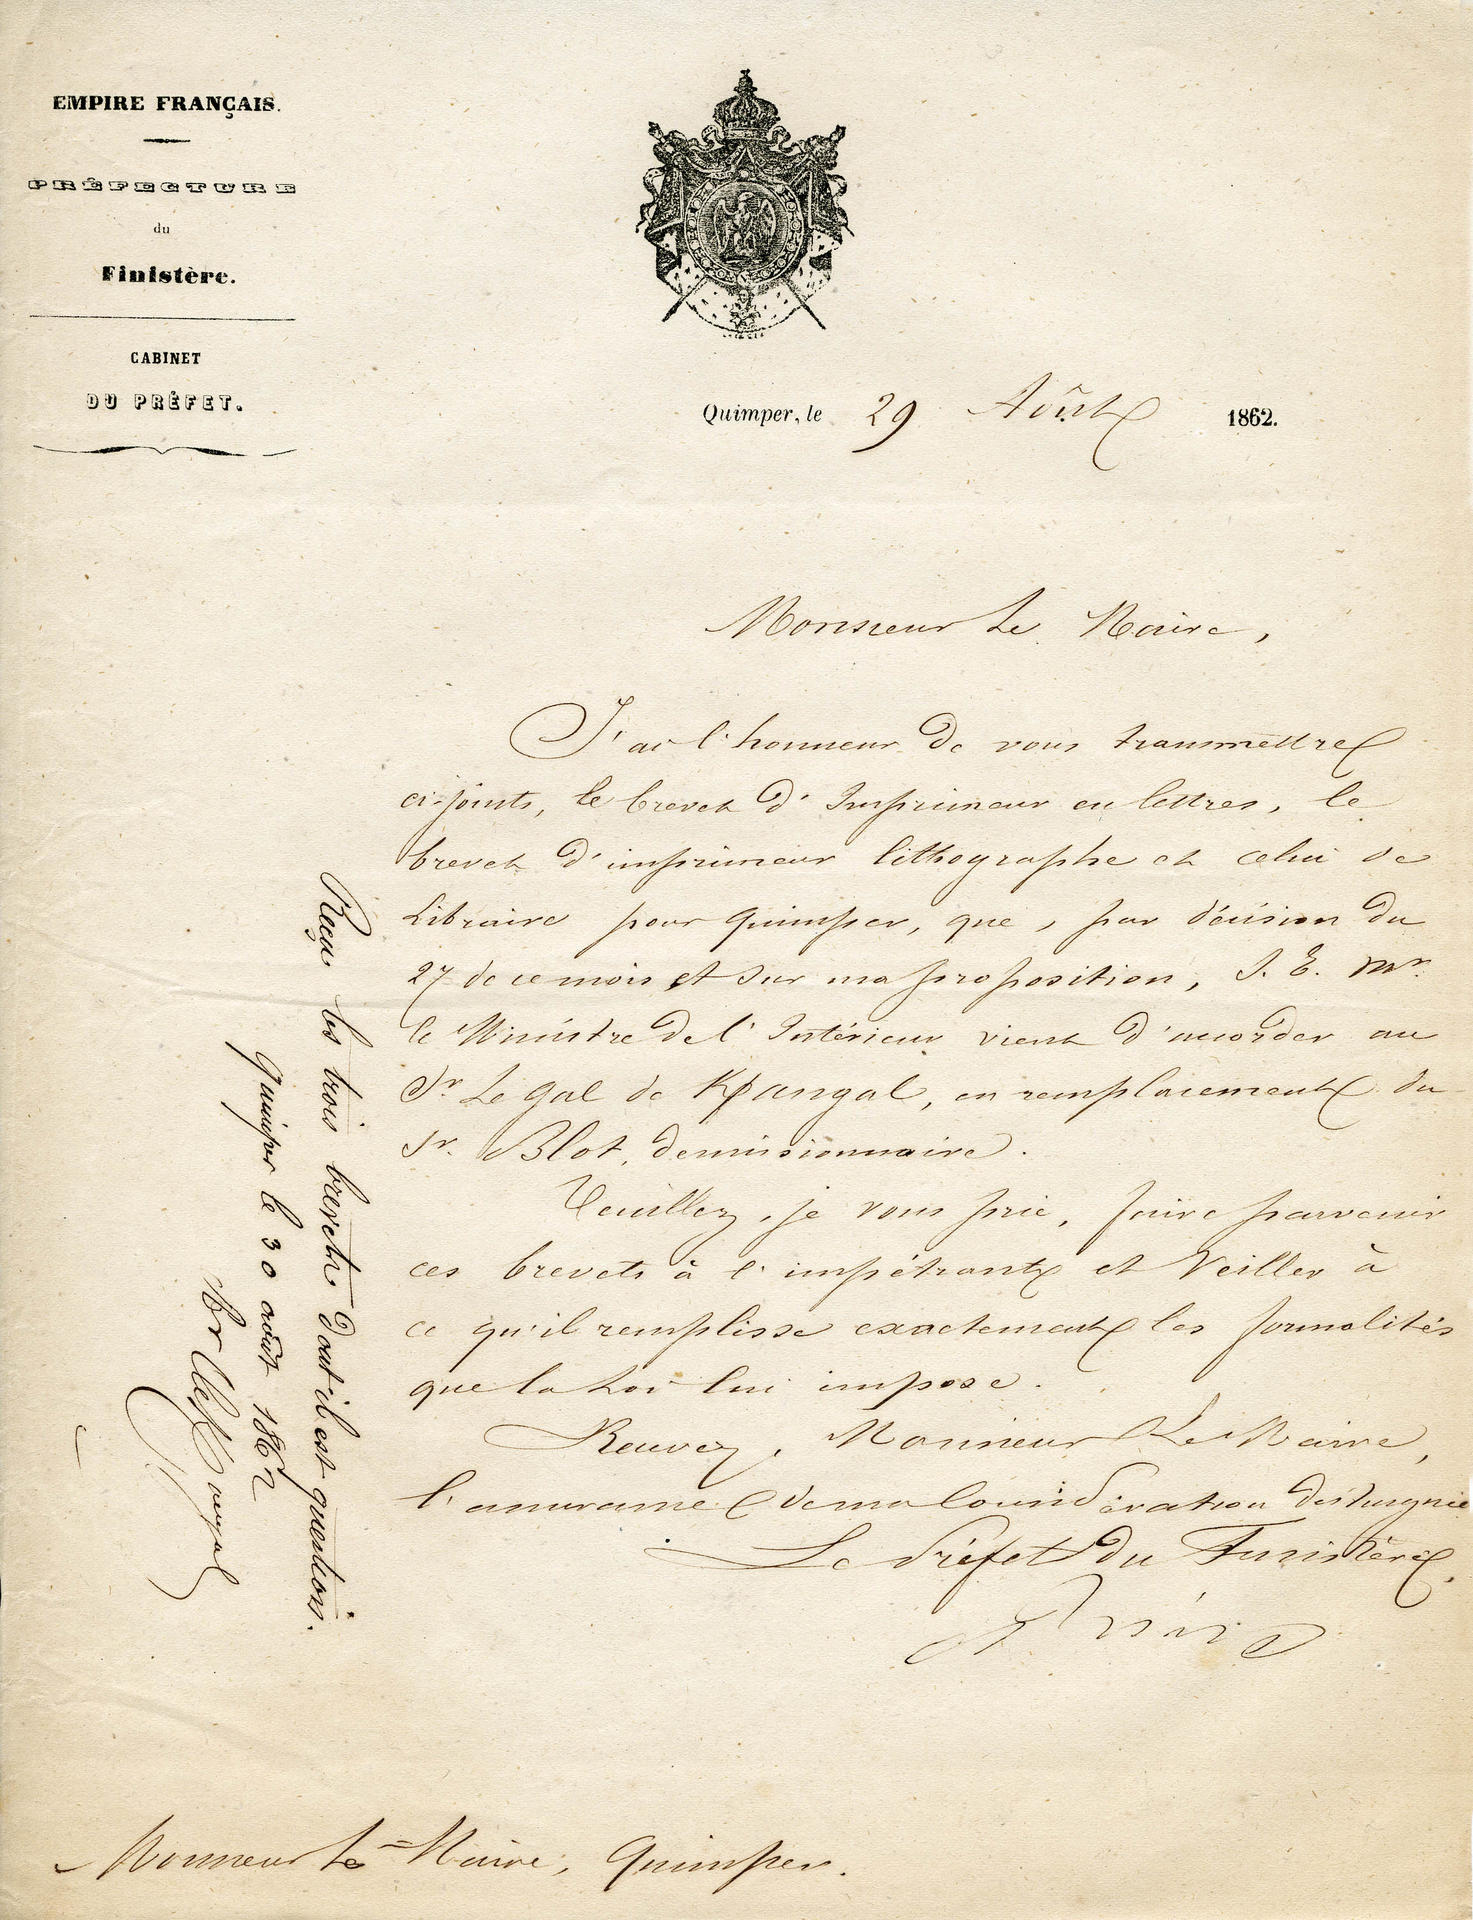 EMPIRE FRANÇAIS.
PRÉFECTURE
du
Finistère.
CABINET
DU PRÉFET.
Quimper, le 29 Août 1862.
Monsieur Le Maire,
J'ai l'honneur de vous transmettre
ci-joints, le brevet d'Imprimeur en lettres, le
brevet d'imprimeur lithographe et celui de
Libraire pour Quimper, que, par décision du
27 de ce mois et sur ma proposition, S. E. Mr
le Ministre de l'Intérieur vient d'accorder au
Sr Le Gal de Kpangal, en remplacement du
Sr. Blot, démissionnaire.
Veuillez, je vous prie, faire parvenir
ces brevets à l'impétrant et Veiller à
ce qu'il remplisse exactement les formalités
que la Loi lui impose.
Recevez, Monsieur Le Maire,
l'assurance de ma considération distinguée
Le Préfet du Finistère,
Reçu les trois brevets dont il est question.
Quimper le 30 août 1862
Monsieur Le Maire, Quimper.